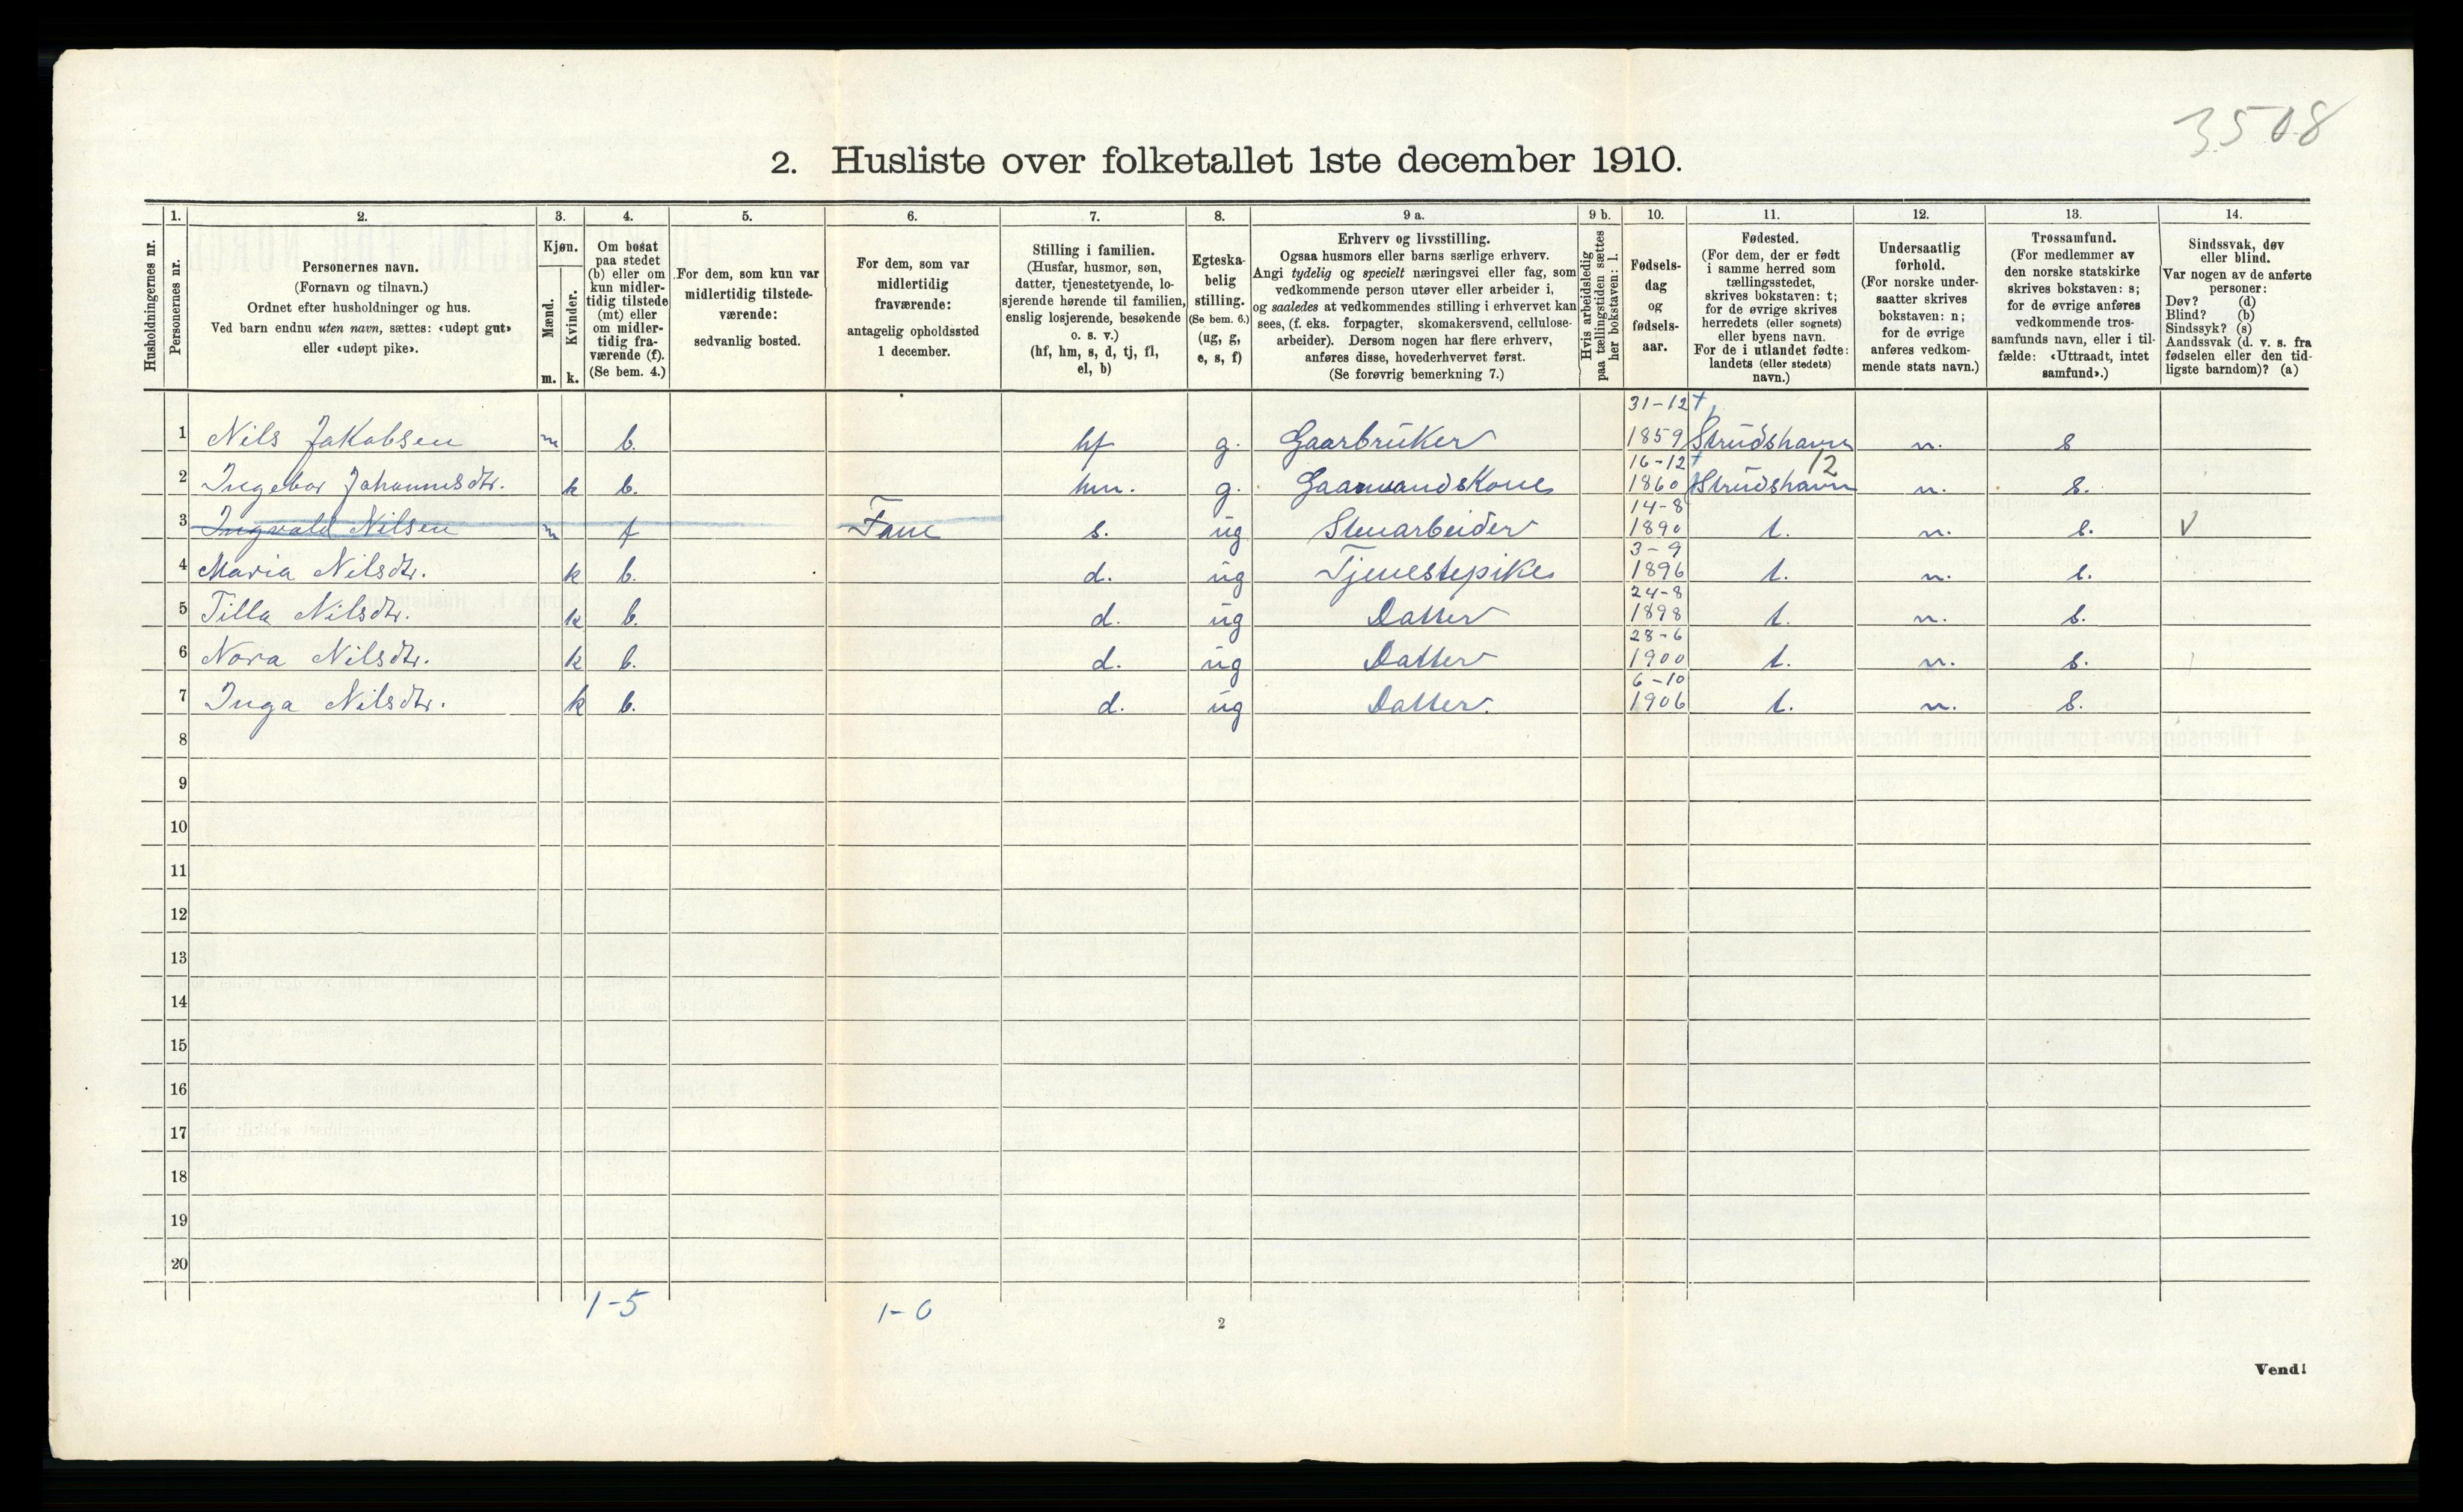 3508
2. Husliste over folketallet 1ste december 1910.
1. 2. 3. 4. 5. 6. 7. 8. 9 a. 9 b. 10. 11. 12. 13. 14.
Husholdningernes nr.
Personernes nr.
Personernes navn.
(Fornavn og tilnavn.)
Ordnet efter husholdninger og hus.
Ved barn endnu uten navn, sættes: «udøpt gut»
eller «udøpt pike».
Kjøn.
Mænd.
Kvinder.
m. k.
Om bosat
paa stedet
(b) eller om
kun midler-
tidig tilstede
(mt) eller
om midler-
tidig fra-
værende (f).
(Se bem. 4.)
For dem, som kun var
midlertidig tilstede-
værende:
sedvanlig bosted.
For dem, som var
midlertidig
fraværende:
antagelig opholdssted
1 december.
Stilling i familien.
(Husfar, husmor, søn,
datter, tjenestetyende, lo-
sjerende hørende til familien,
enslig losjerende, besøkende
o. s. v.)
(hf, hm, s, d, tj, fl,
el, b)
Egteska-
belig
stilling.
(Se bem. 6.)
(ug, g,
e, s, f)
Erhverv og livsstilling.
Ogsaa husmors eller barns særlige erhverv.
Angi tydelig og specielt næringsvei eller fag, som
vedkommende person utøver eller arbeider i,
og saaledes at vedkommendes stilling i erhvervet kan
sees, (f. eks. forpagter, skomakersvend, cellulose-
arbeider). Dersom nogen har flere erhverv,
anføres disse, hovederhvervet først.
(Se forøvrig bemerkning 7.)
Hvis arbeidsledig
paa tællingstiden sættes
her bokstaven: l.
Fødsels-
dag
og
fødsels-
aar.
Fødested.
(For dem, der er født
i samme herred som
tællingsstedet,
skrives bokstaven: t;
for de øvrige skrives
herredets (eller sognets)
eller byens navn.
For de i utlandet fødte:
landets (eller stedets)
navn.)
Undersaatlig
forhold.
(For norske under-
saatter skrives
bokstaven: n;
for de øvrige
anføres vedkom-
mende stats navn.)
Trossamfund.
(For medlemmer av
den norske statskirke
skrives bokstaven: s;
for de øvrige anføres
vedkommende tros-
samfunds navn, eller i til-
fælde: «Uttraadt, intet
samfund».)
Sindssvak, døv
eller blind.
Var nogen av de anførte
personer:
Døv? (d)
Blind? (b)
Sindssyk? (s)
Aandssvak (d. v. s. fra
fødselen eller den tid-
ligste barndom)? (a)
31-12
1 Nils Jakobsen m b. hf g. Gaarbruker 1859 Strudshavn n. s
16-12 12
2 Ingebor Johannesdtr. k b. hm. g. Gaarmandskone 1860 Strudshavn n. s.
14-8
3 Ingvald Nilsen m f Fane s. ug Stenarbeider 1890 t. n. s. V
3-9
4 Maria Nilsdtr. k b. d. ug Tjenestepike 1896 t. n. s.
24-8
5 Tilla Nilsdtr. k b. d. ug Datter 1898 t. n. s.
28-6
6 Nora Nilsdtr. k b. d. ug Datter 1900 t. n. s.
6-10
7 Inga Nilsdtr. k b. d. ug Datter. 1906 t. n. s.
8
9
10
11
12
13
14
15
16
17
18
19
20
1-5 1-0
2
Vend!